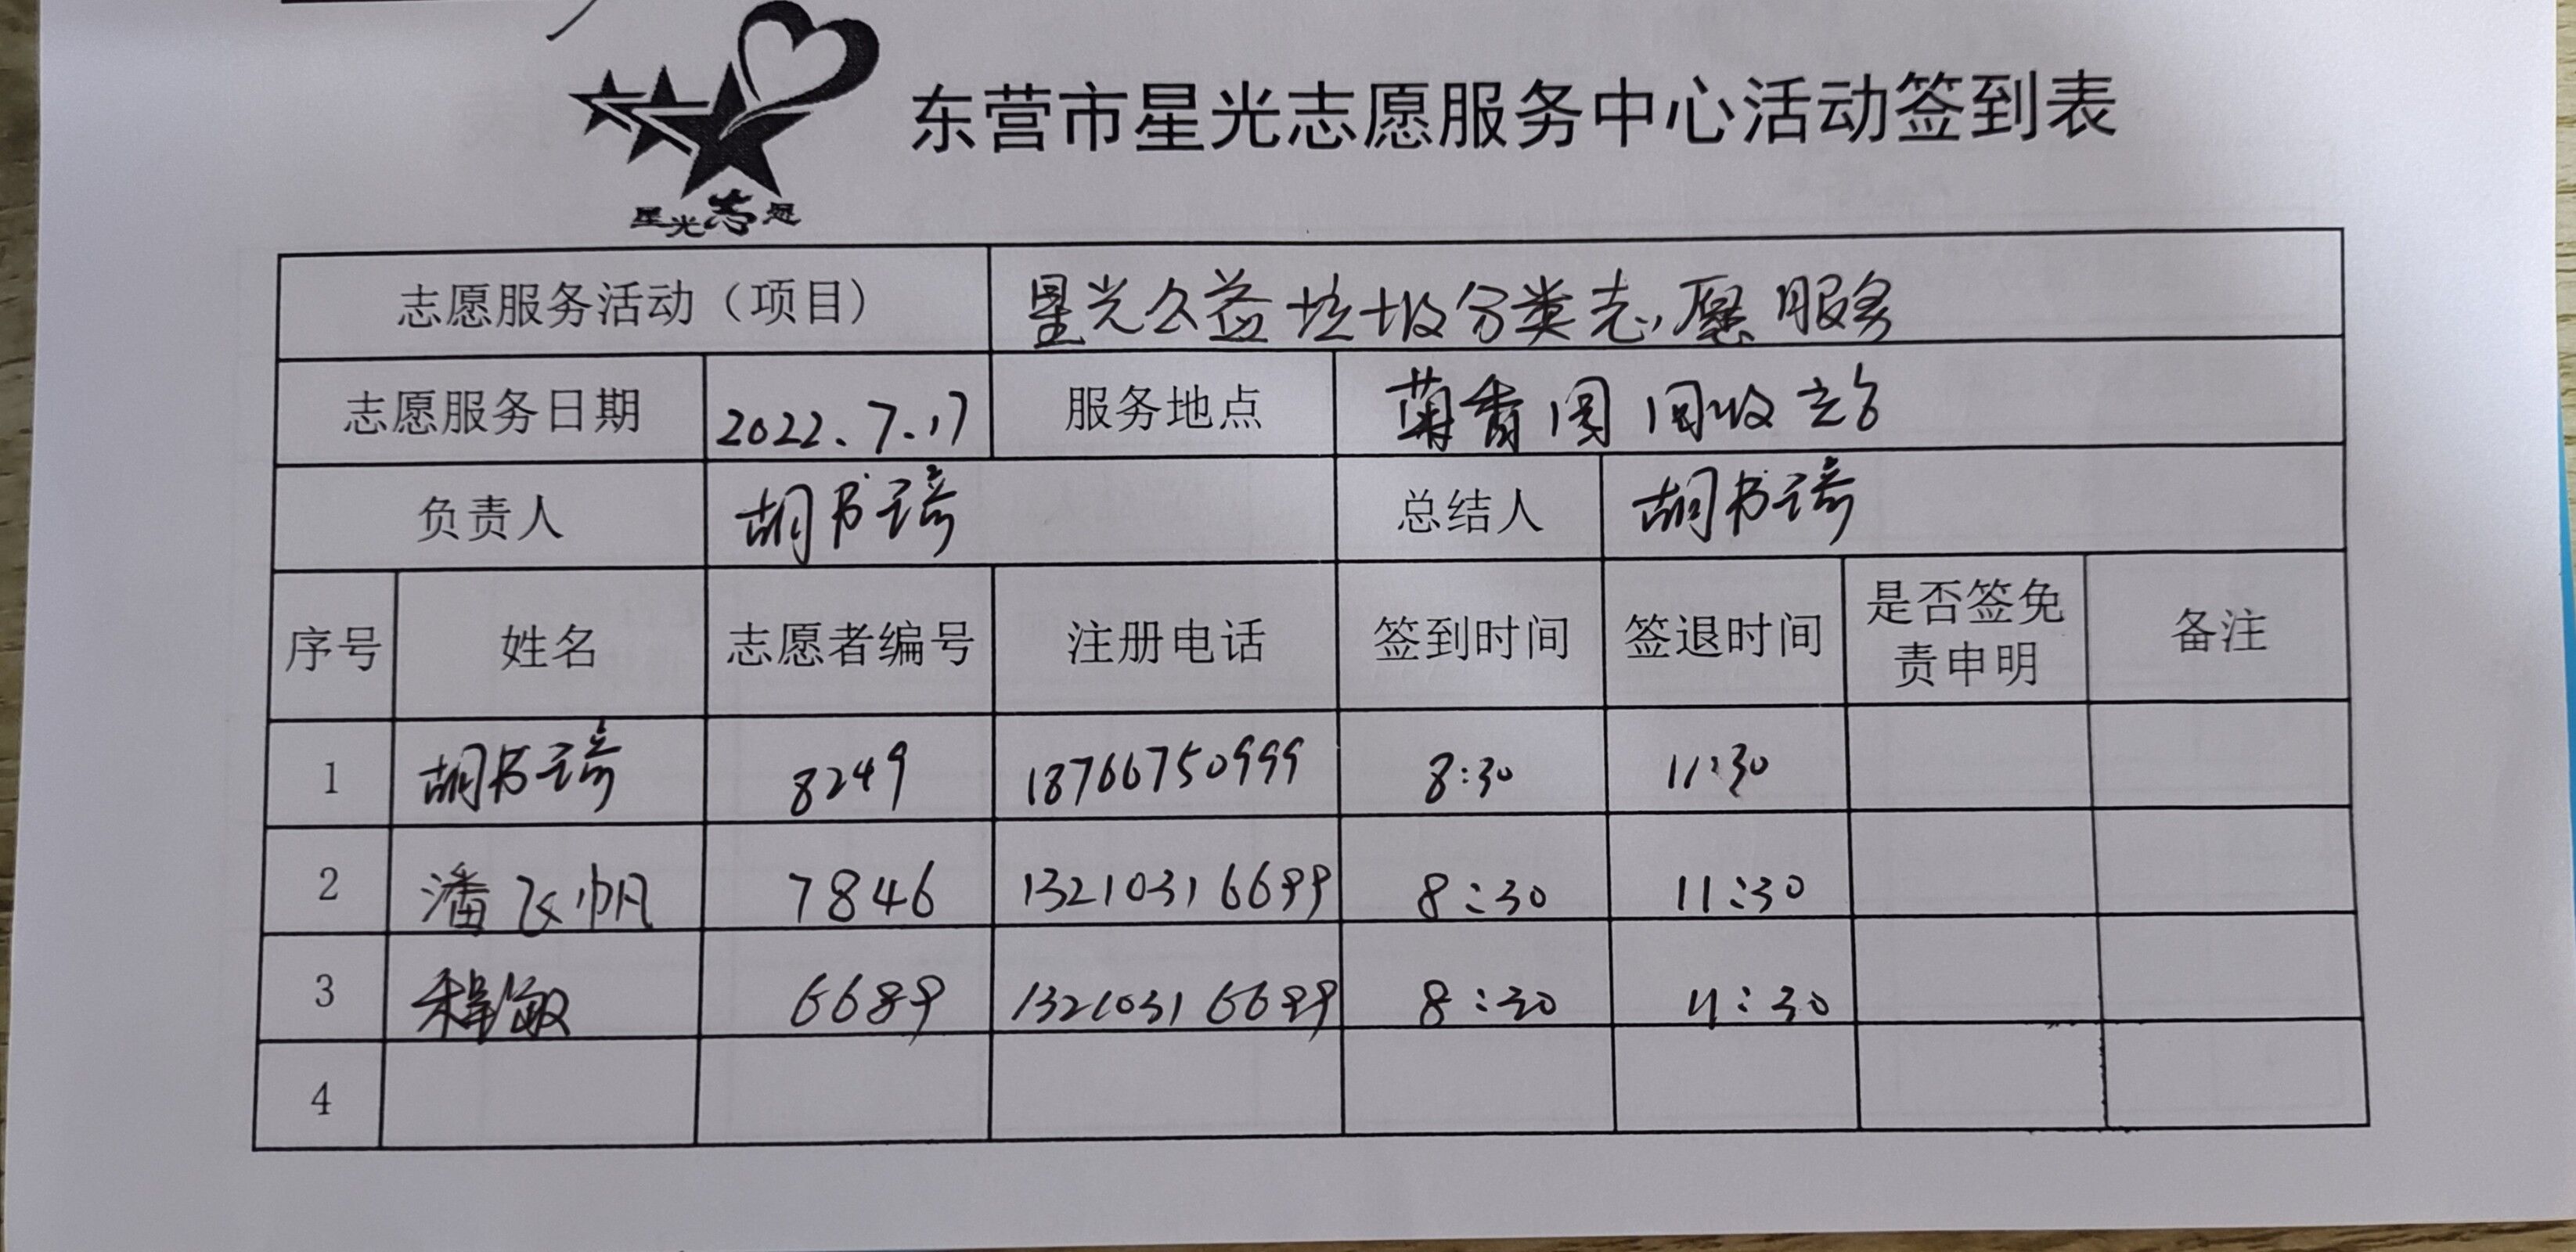 星光志愿
东营市星光志愿服务中心活动签到表
志愿服务活动（项目） 星光公益垃圾分类志愿服务
志愿服务日期 2022.7.17 服务地点 菊香园回收站
负责人 胡书琦 总结人 胡书琦
序号 姓名 志愿者编号 注册电话 签到时间 签退时间 是否签免责申明 备注
1 胡书琦 8249 18766750999 8:30 11:30
2 潘飞帆 7846 13210316699 8:30 11:30
3 程敏 6689 13210316699 8:30 11:30
4